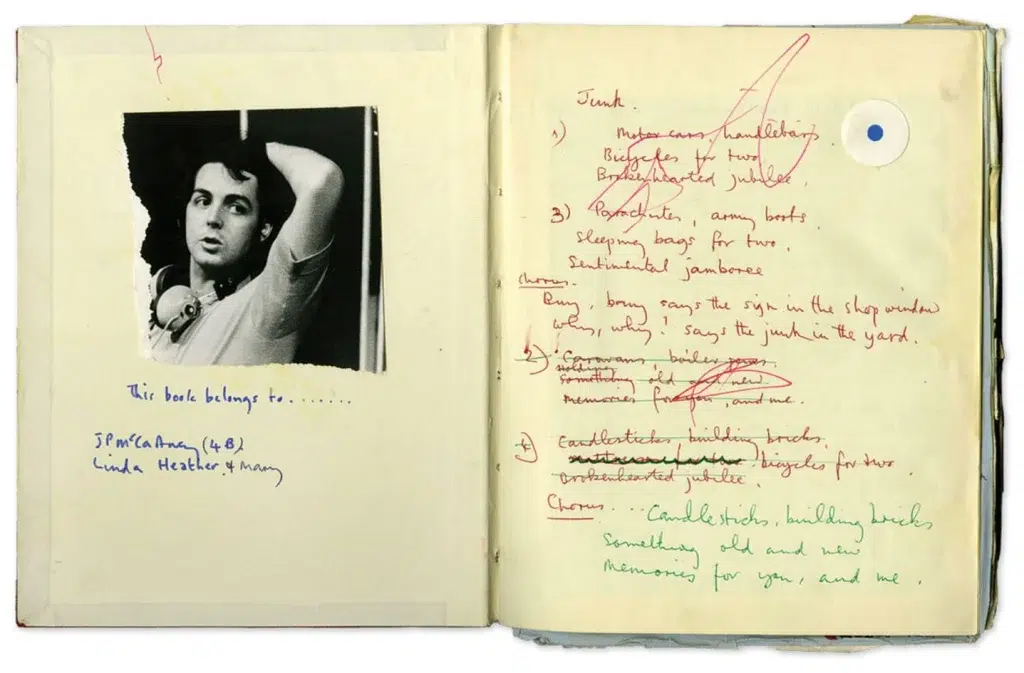 This book belongs to.......
JP McCartney (4B)
Linda Heather & Mary
Junk.
1) Motor cars, handlebars
Bicycles for two
Brokenhearted jubilee.
3) Parachutes, army boots
Sleeping bags for two.
Sentimental jamboree
Chorus.
Buy, buy says the sign in the shop window
Why, why? says the junk in the yard.
2) Caravans, boiler
Holding
Something old and new
Memories for you, and me.
4) Candlesticks, building bricks,
bicycles for two
Brokenhearted jubilee.
Chorus....
Candlesticks, building bricks
Something old and new
Memories for you, and me.